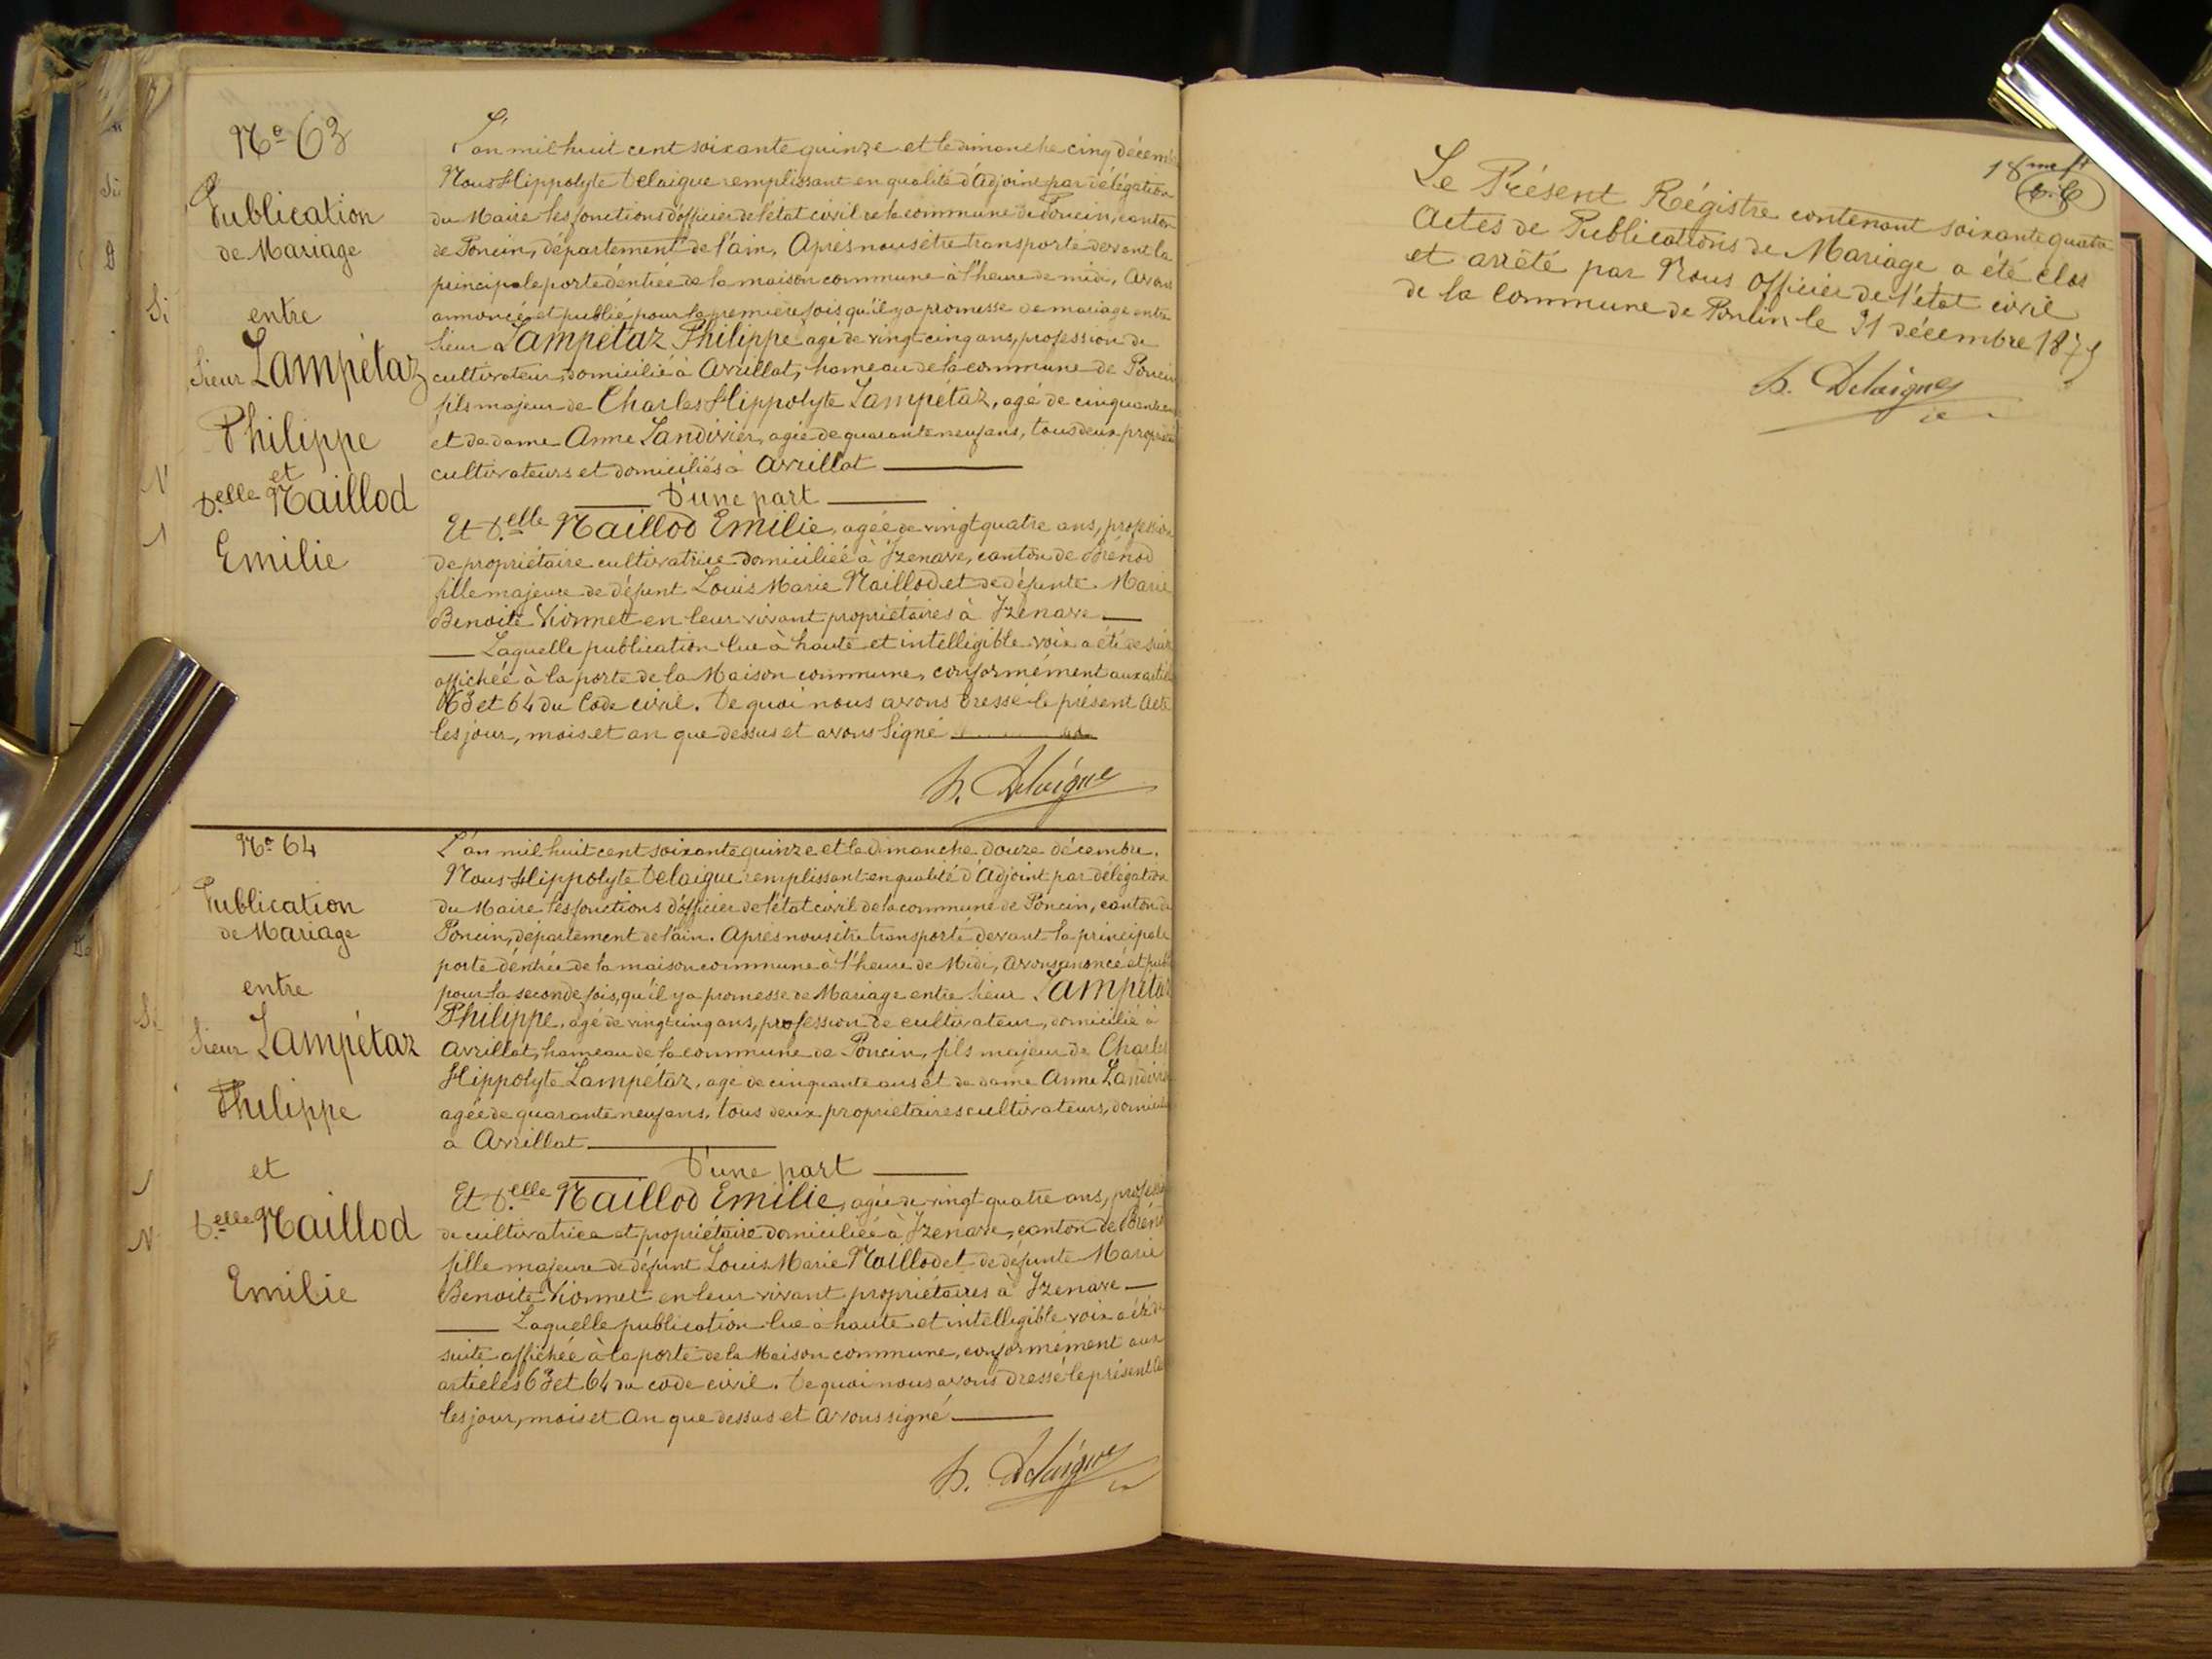 Nº 63
Publication
de Mariage
entre
Sieur Lampétaz
Philippe
et
D.elle Maillod
Emilie
L'an mil huit cent soixante quinze et le dimanche cinq décemb
Nous Hippolyte Delaigue remplissant en qualité d'Adjoint par délégation
du Maire les fonctions d'officier de l'état civil de la commune de Poncin, canton
de Poncin, département de l'ain, Après nous être transporté devant la
principale porte d'entrée de la maison commune à l'heure de midi, Avons
annoncé et publié pour la premiere fois qu'il y a promesse de mariage entre
Sieur Lampétaz Philippe agé de vingt cinq ans, profession de
cultivateur, domicilié à Avrillat, hameau de la commune de Poncin
fils majeur de Charles Hippolyte Lampétaz, agé de cinquante
et de dame Anne Landivier, agée de quarante neuf ans, tous deux propriét
cultivateurs et domiciliés à Avrillat
D'une part
Et D.elle Maillod Emilie, agée de vingt quatre ans, profession
de propriétaire cultivatrice domiciliée à Izenave, canton de Brénod
fille majeure de défunt Louis Marie Maillod et de défunte Marie
Benoite Vionnet en leur vivant propriétaires à Izenave
Laquelle publication lue à haute et intelligible voix a été de suite
affichée à la porte de la Maison commune, conformément aux articl
63 et 64 du Code civil. De quoi nous avons dressé le présent Acte
les jour, mois et an que dessus et avons Signé
h. Delaigue
Nº 64
Publication
de Mariage
entre
Sieur Lampétaz
Philippe
et
D.elle Maillod
Emilie
L'an mil huit cent soixante quinze et le dimanche douze décembre.
Nous Hippolyte Delaigue remplissant en qualité d'Adjoint par délégation
du Maire les fonctions d'officier de l'état civil de la commune de Poncin, canton de
Poncin, département de l'ain. Après nous être transporté devant la principale
porte d'entrée de la maison commune à l'heure de Midi, Avons anoncé et publ
pour la seconde fois, qu'il y a promesse de Mariage entre Sieur Lampétaz
Philippe, agé de vingt cinq ans, profession de cultivateur, domicilié à
Avrillat, hameau de la commune de Poncin, fils majeur de Charles
Hippolyte Lampétaz, agé de cinquante ans et de dame Anne Landivier
agée de quarante neuf ans, tous deux propriétaires cultivateurs, domicil
a Avrillat
D'une part
Et D.elle Maillod Emilie, agée de vingt quatre ans, profession
de cultivatrice et propriétaire domiciliée à Izenave, canton de Bréno
fille majeure de défunt Louis Marie Maillod et de défunte Marie
Benoite Vionnet en leur vivant propriétaires à Izenave
Laquelle publication lue à haute et intelligible voix a été de
suite affichée à la porte de la Maison commune, conformément aux
articles 63 et 64 du code civil. De quoi nous avons dressé le présent Ac
les jour, mois et an que dessus et avons signé
h. Delaigue
18me ft
Le Présent Régistre contenant soixante quatre
Actes de Publications de Mariage a été clos
et arrêté par Nous Officier de l'état civil
de la Commune de Poncin le 31 décembre 1875
h. Delaigue